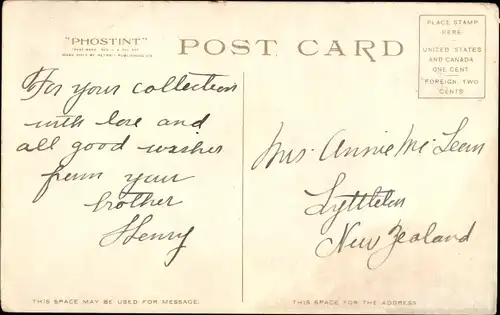 "PHOSTINT"
POST CARD
PLACE STAMP
HERE
UNITED STATES
AND CANADA
ONE CENT
FOREIGN, TWO
CENTS
For your collection
with love and
all good wishes
from your
brother
Henry
Mrs. Annie Mc Lean
Lyttleton
New Zealand
THIS SPACE MAY BE USED FOR MESSAGE.
THIS SPACE FOR THE ADDRESS